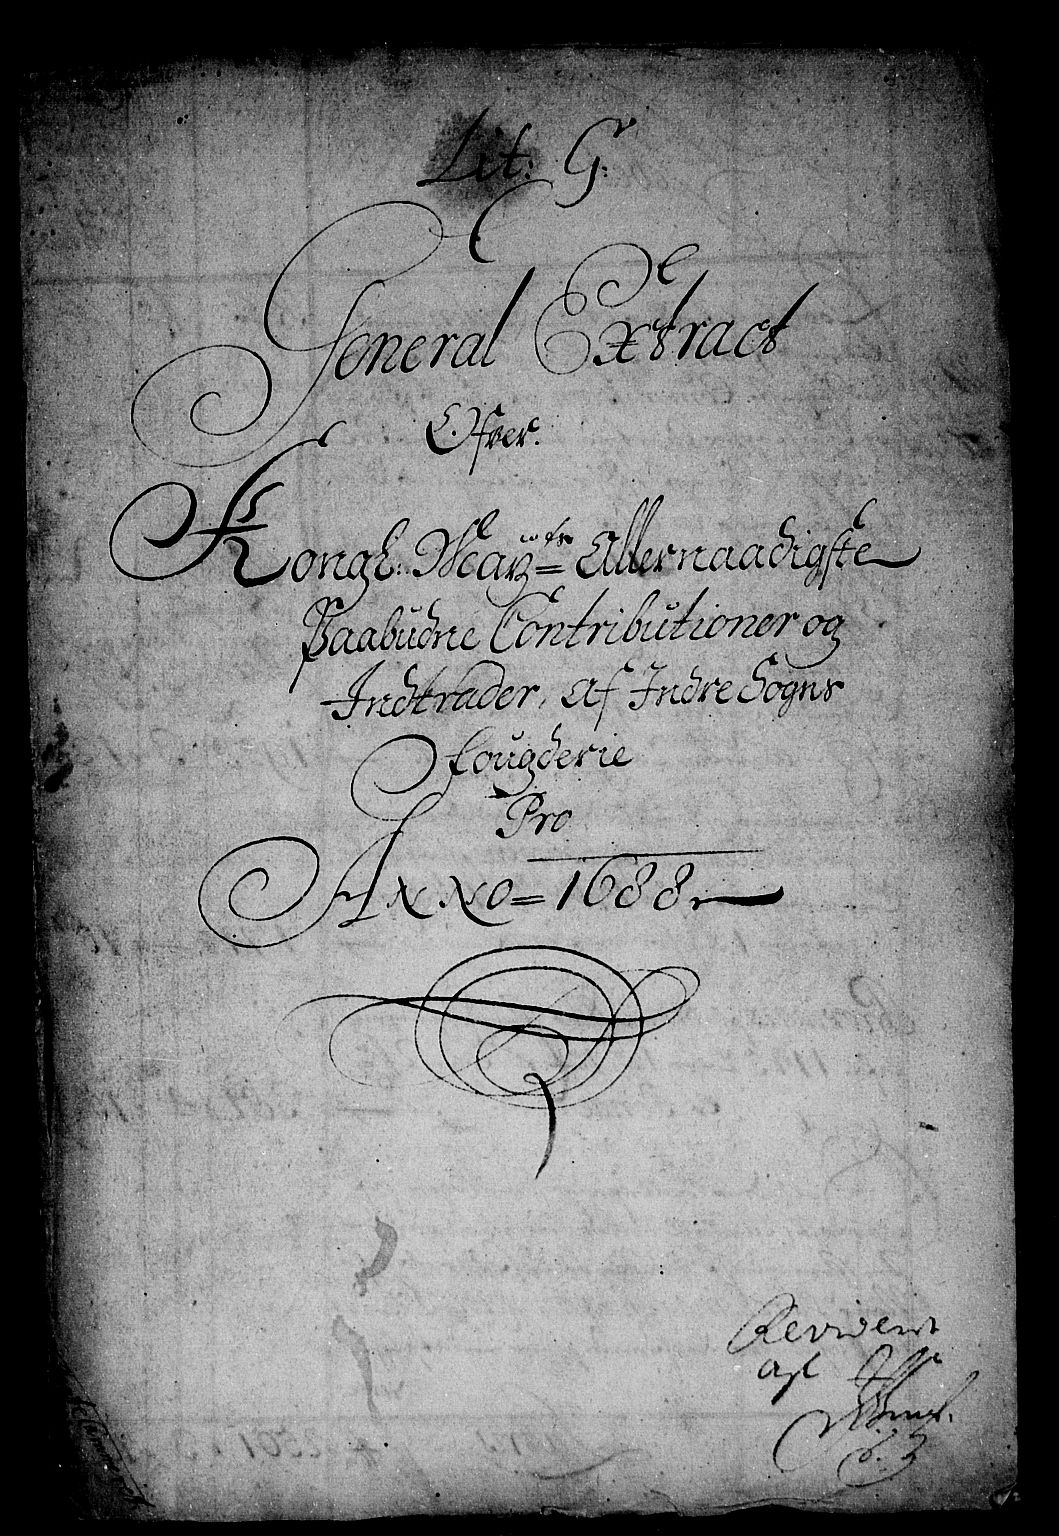 Lit: G:
General Extract
Ofver.
Kongl: Mayts= Allernaadigste
Paabudne Contributioner og
Indtrader, af Indre Sogns
fougderie
Pro
Anno = 1688
Revideret